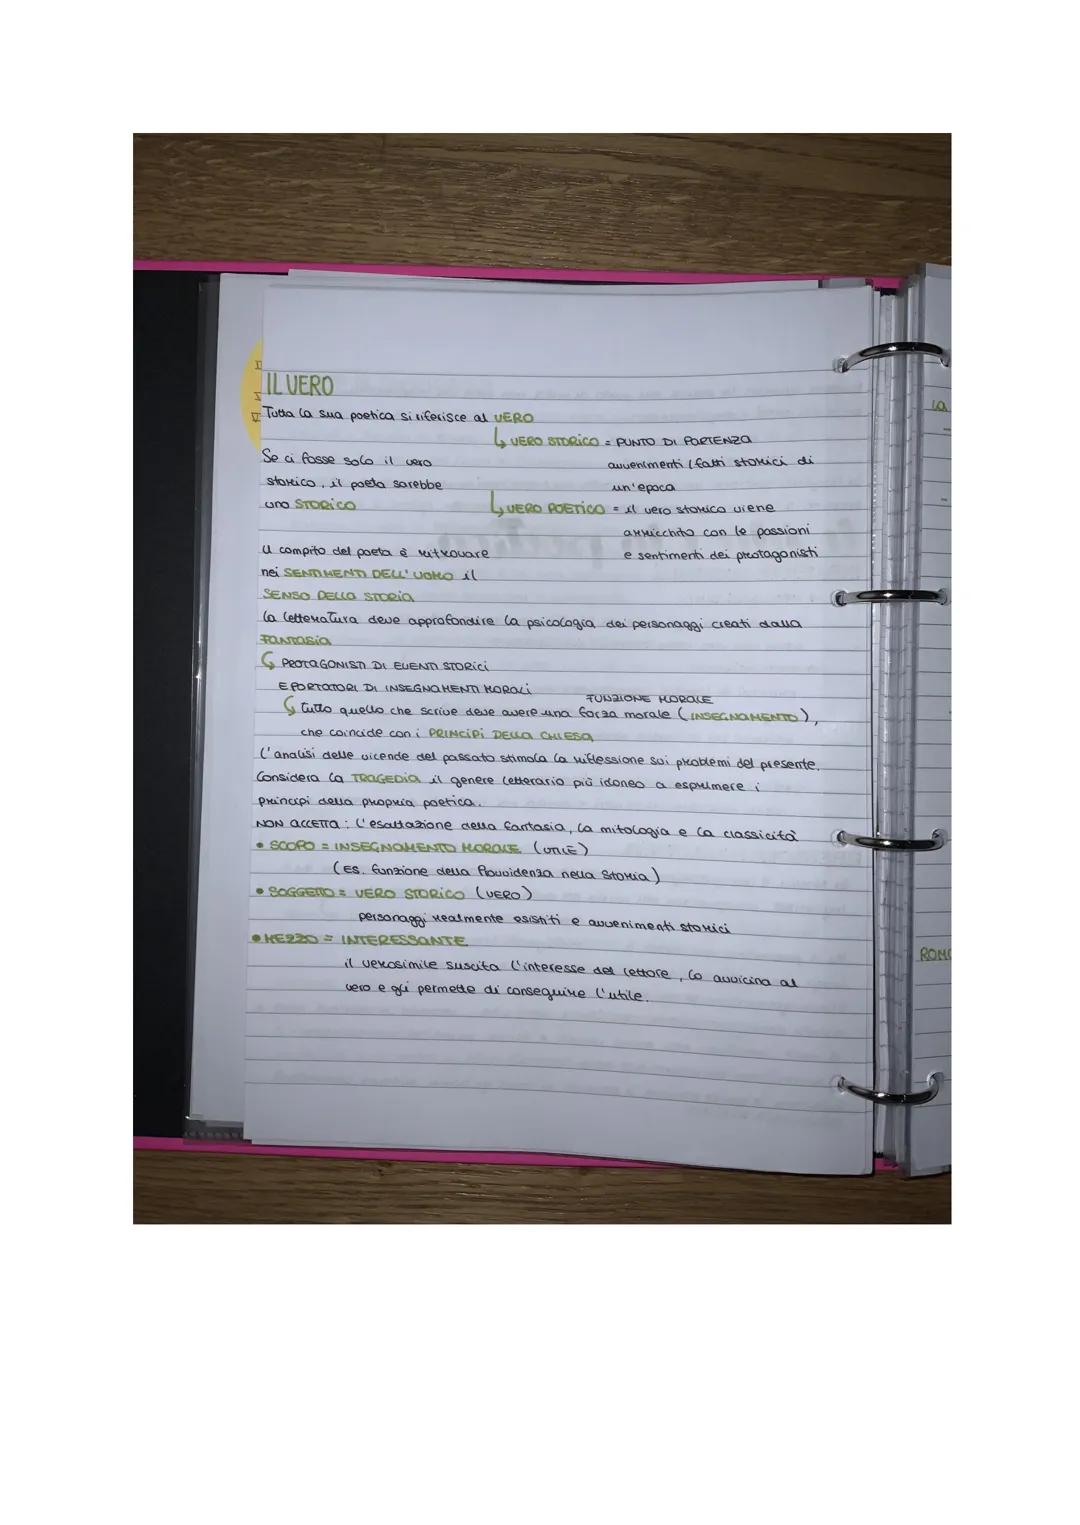 IL VERO
Tutta la sua poetica si riferisce al VERO
VERO STORICO = PUNTO DI PARTENZA
Se ci fosse solo il vero
avvenimenti / fatti storici di
storico, il poeta sarebbe
un'epoca
uno STORICO
VERO POETICO = il vero storico viene
arricchito con le passioni
Il compito del poeta è ritrovare
e sentimenti dei protagonisti
nei SENTIMENTI DELL'UOMO il
SENSO DELLA STORIA
La letteratura deve approfondire la psicologia dei personaggi creati dalla
FANTASIA
PROTAGONISTI DI EVENTI STORICI
E PORTATORI DI INSEGNAMENTI MORALI
FUNZIONE MORALE
tutto quello che scrive deve avere una forza morale (INSEGNAMENTO),
che coincide con i PRINCIPI DELLA CHIESA
L'analisi delle vicende del passato stimola la riflessione sui problemi del presente.
Considera la TRAGEDIA il genere letterario più idoneo a esprimere i
principi della propria poetica.
NON ACCETTA: l'esaltazione della fantasia, la mitologia e la classicità
• SCOPO = INSEGNAMENTO MORALE (UTILE)
(ES. funzione della Provvidenza nella Storia)
• SOGGETTO = VERO STORICO (VERO)
personaggi realmente esistiti e avvenimenti storici
• MEZZO = INTERESSANTE
il verosimile suscita l'interesse del lettore, lo avvicina al
vero e gli permette di conseguire l'utile.
LA